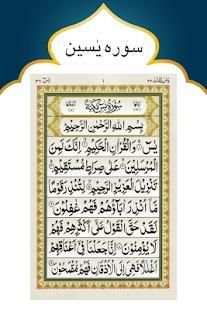 سورہ یٰسین
سُوْرَةُ يٰسٓ مَكِّيَّةٌ
بِسْمِ اللّٰهِ الرَّحْمٰنِ الرَّحِيْمِ
يٰسٓ ۚ وَالْقُرْاٰنِ الْحَكِيْمِ ۙ اِنَّكَ لَمِنَ
الْمُرْسَلِيْنَ ۙ عَلٰى صِرَاطٍ مُّسْتَقِيْمٍ ؕ
تَنْزِيْلَ الْعَزِيْزِ الرَّحِيْمِ ۙ لِتُنْذِرَ قَوْمًا
مَّاۤ اُنْذِرَ اٰبَآؤُهُمْ فَهُمْ غٰفِلُوْنَ
لَقَدْ حَقَّ الْقَوْلُ عَلٰۤى اَكْثَرِهِمْ فَهُمْ
لَا يُؤْمِنُوْنَ اِنَّا جَعَلْنَا فِيْۤ اَعْنَاقِهِمْ
اَغْلٰلًا فَهِيَ اِلَى الْاَذْقَانِ فَهُمْ مُّقْمَحُوْنَ